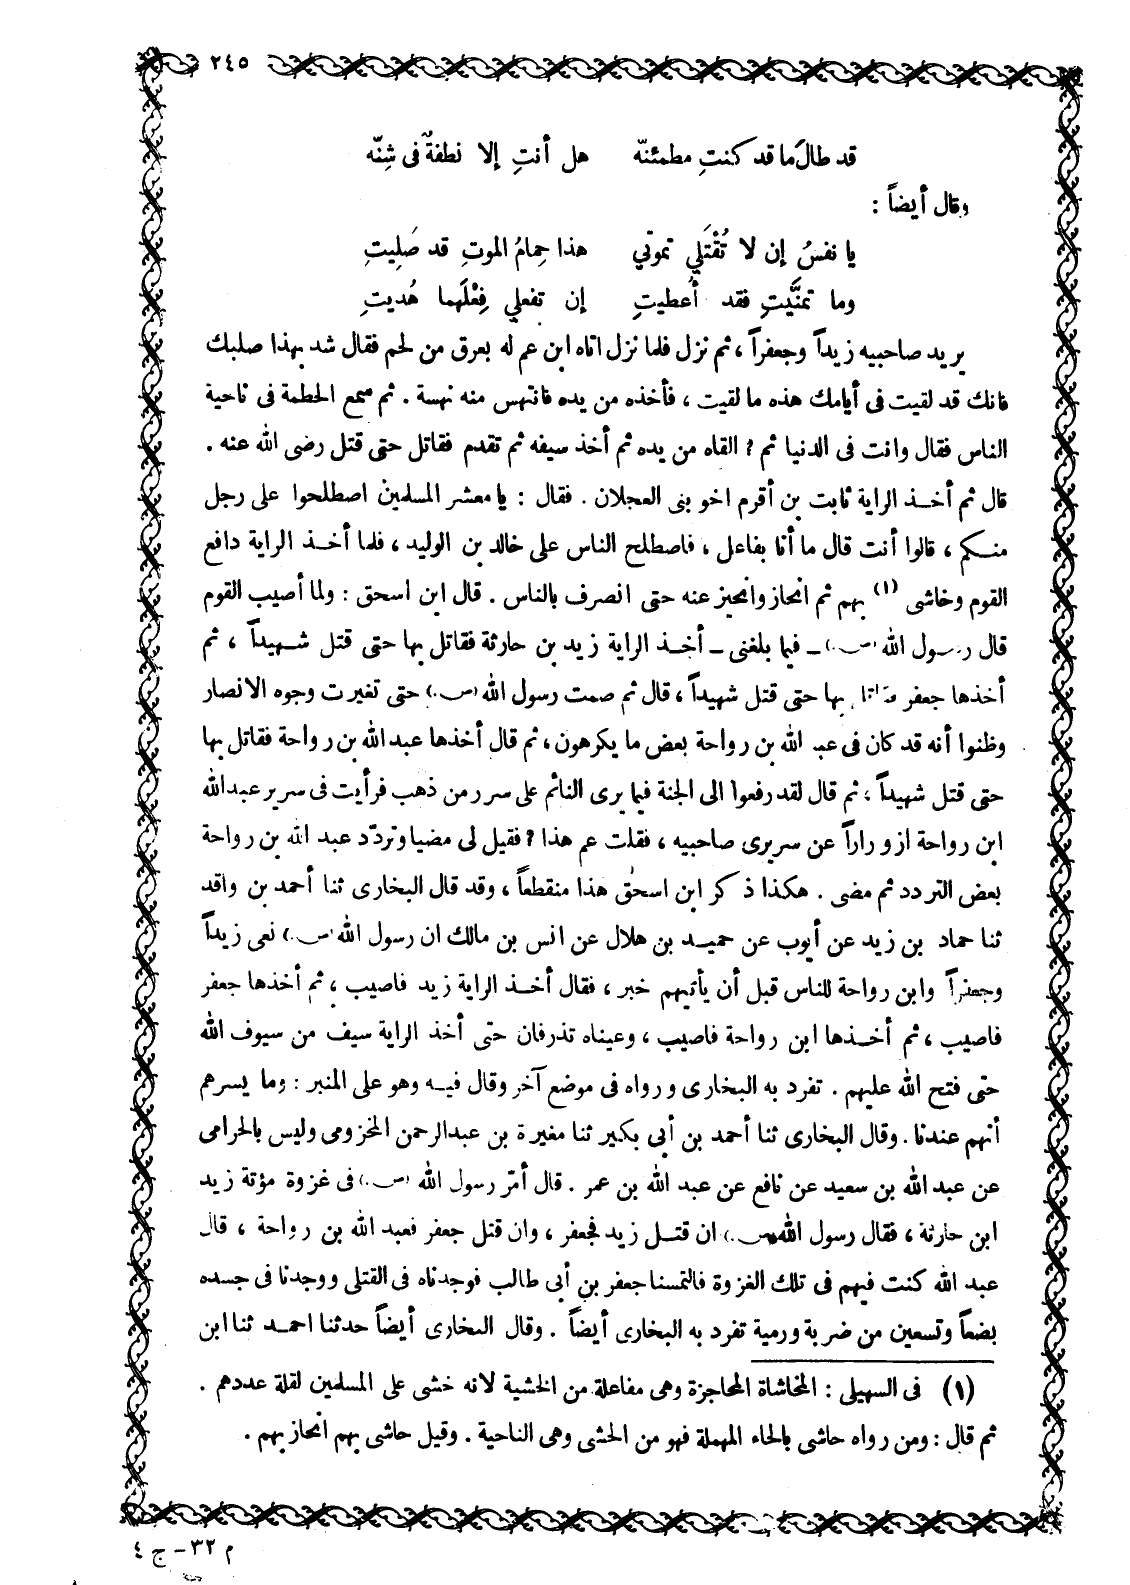 ٢٤٥
قد طالَ ما قد كنتِ مطمئنّه هل أنتِ إلا نطفةٌ فى شِنّه
وقال أيضاً :
يا نفسُ إن لا تُقْتَلي تموتي هذا حِمامُ الموتِ قد صَلِيتِ
وما تمنَّيتِ فقد أُعطيتِ إن تفعلي فِعْلَهما هُديتِ
يريد صاحبيه زيداً وجعفراً ، ثم نزل فلما نزل اتاه ابن عم له بعرق من لحم فقال شد بهذا صلبك
فانك قد لقيت فى أيامك هذه ما لقيت ، فأخذه من يده فانتهس منه نهسة . ثم سمع الحطمة فى ناحية
الناس فقال وانت فى الدنيا ثم ? القاه من يده ثم أخذ سيفه ثم تقدم فقاتل حتى قتل رضى الله عنه .
قال ثم أخـذ الراية ثابت بن أقرم اخو بنى العجلان . فقال : يا معشر المسلمين اصطلحوا على رجل
منـكم ، قالوا أنت قال ما أنا بفاعل ، فاصطلح الناس على خالد بن الوليد ، فلما أخـذ الراية دافع
القوم وخاشى (١) بهم ثم انحاز وانحيز عنه حتى انصرف بالناس . قال ابن اسحق : ولما أصيب القوم
قال رسول الله (ص.) ـ فيما بلغنى ـ أخـذ الراية زيد بن حارثة فقاتل بها حتى قتل شـهيداً ، ثم
أخذها جعفر فقاتل بها حتى قتل شهيداً ، قال ثم صمت رسول الله (ص.) حتى تغيرت وجوه الانصار
وظنوا أنه قد كان فى عبد الله بن رواحة بعض ما يكرهون ، ثم قال أخذها عبد الله بن رواحة فقاتل بها
حتى قتل شهيداً ، ثم قال لقد رفعوا الى الجنة فيما يرى النائم على سرر من ذهب فرأيت فى سرير عبد الله
ابن رواحة ازوراراً عن سريرى صاحبيه ، فقلت عم هذا ? فقيل لى مضيا وتردّد عبد الله بن رواحة
بعض التردد ثم مضى . هكذا ذكر ابن اسحٰق هذا منقطعاً ، وقد قال البخارى ثنا أحمد بن واقد
ثنا حماد بن زيد عن أيوب عن حميـد بن هلال عن انس بن مالك ان رسول الله (ص.) نعى زيداً
وجعفراً وابن رواحة للناس قبل أن يأتيهم خبر ، فقال أخـذ الراية زيد فاصيب ، ثم أخذها جعفر
فاصيب ، ثم أخـذها ابن رواحة فاصيب ، وعيناه تذرفان حتى أخذ الراية سيف من سيوف الله
حتى فتح الله عليهم . تفرد به البخارى ورواه فى موضع آخر وقال فيـه وهو على المنبر : وما يسرهم
أنهم عندنا . وقال البخارى ثنا أحمد بن أبي بكير ثنا مغيرة بن عبدالرحمن المخزومى وليس بالحرامى
عن عبد الله بن سعيد عن نافع عن عبد الله بن عمر . قال أمّر رسول الله (ص.) فى غزوة مؤتة زيد
ابن حارثة ، فقال رسول الله (ص.) ان قتـل زيد فجعفر ، وان قتل جعفر فعبد الله بن رواحة ، قال
عبد الله كنت فيهم فى تلك الغزوة فالتمسنا جعفر بن أبي طالب فوجدناه فى القتلى ووجدنا فى جسده
بضعاً وتسعين من ضربة ورمية تفرد به البخارى أيضاً . وقال البخارى أيضاً حدثنا احمد ثنا ابن
(١) فى السهيلى : المخاشاة المحاجزة وهى مفاعلة من الخشية لانه خشى على المسلمين لقلة عددهم .
ثم قال : ومن رواه حاشى بالحاء المهملة فهو من الحشى وهى الناحية . وقيل حاشى بهم انحاز بهم .
م ٣٢ – ج ٤